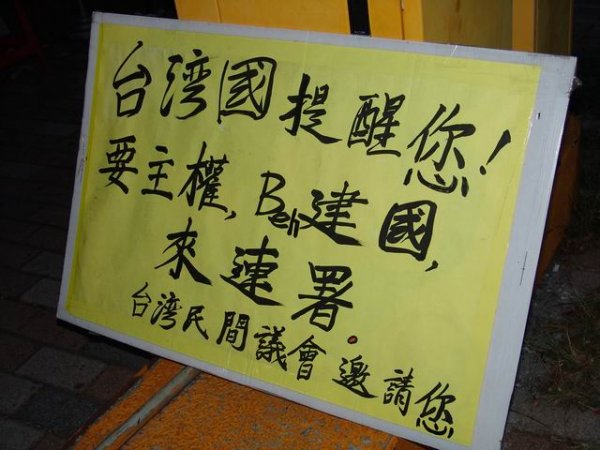 台湾國提醒您!
要主權,Beh建國,
來連署.
台湾民間議會邀請您